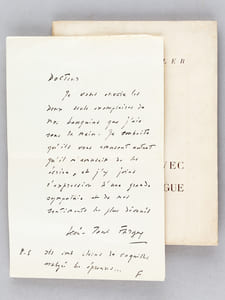 Docteur
Je vous envoie les
deux seuls exemplaires de
mes bouquins que j'aie
sous la main. Je souhaite
qu'ils vous amusent autant
qu'il m'amusait de les
écrire, et j'y joins
l'expression d'une grande
sympathie et de mes
sentiments les plus dévoués
Léon-Paul Fargue
P.S Ils sont pleins de coquilles
malgré les épreuves...
F
LER
VEC
GUE